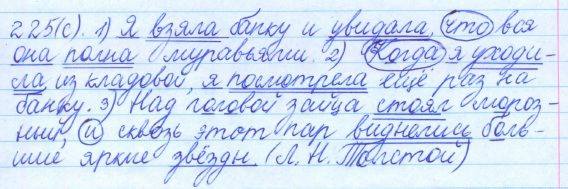 225(с). 1) Я взяла банку и увидала, что вся
она полна муравьями. 2) Когда я уходи-
ла из кладовой, я посмотрела ещё раз на
банку. 3) Над головой зайца стоял мороз-
ный, и сквозь этот пар виднелись боль-
шие яркие звёзды. (Л. Н. Толстой)